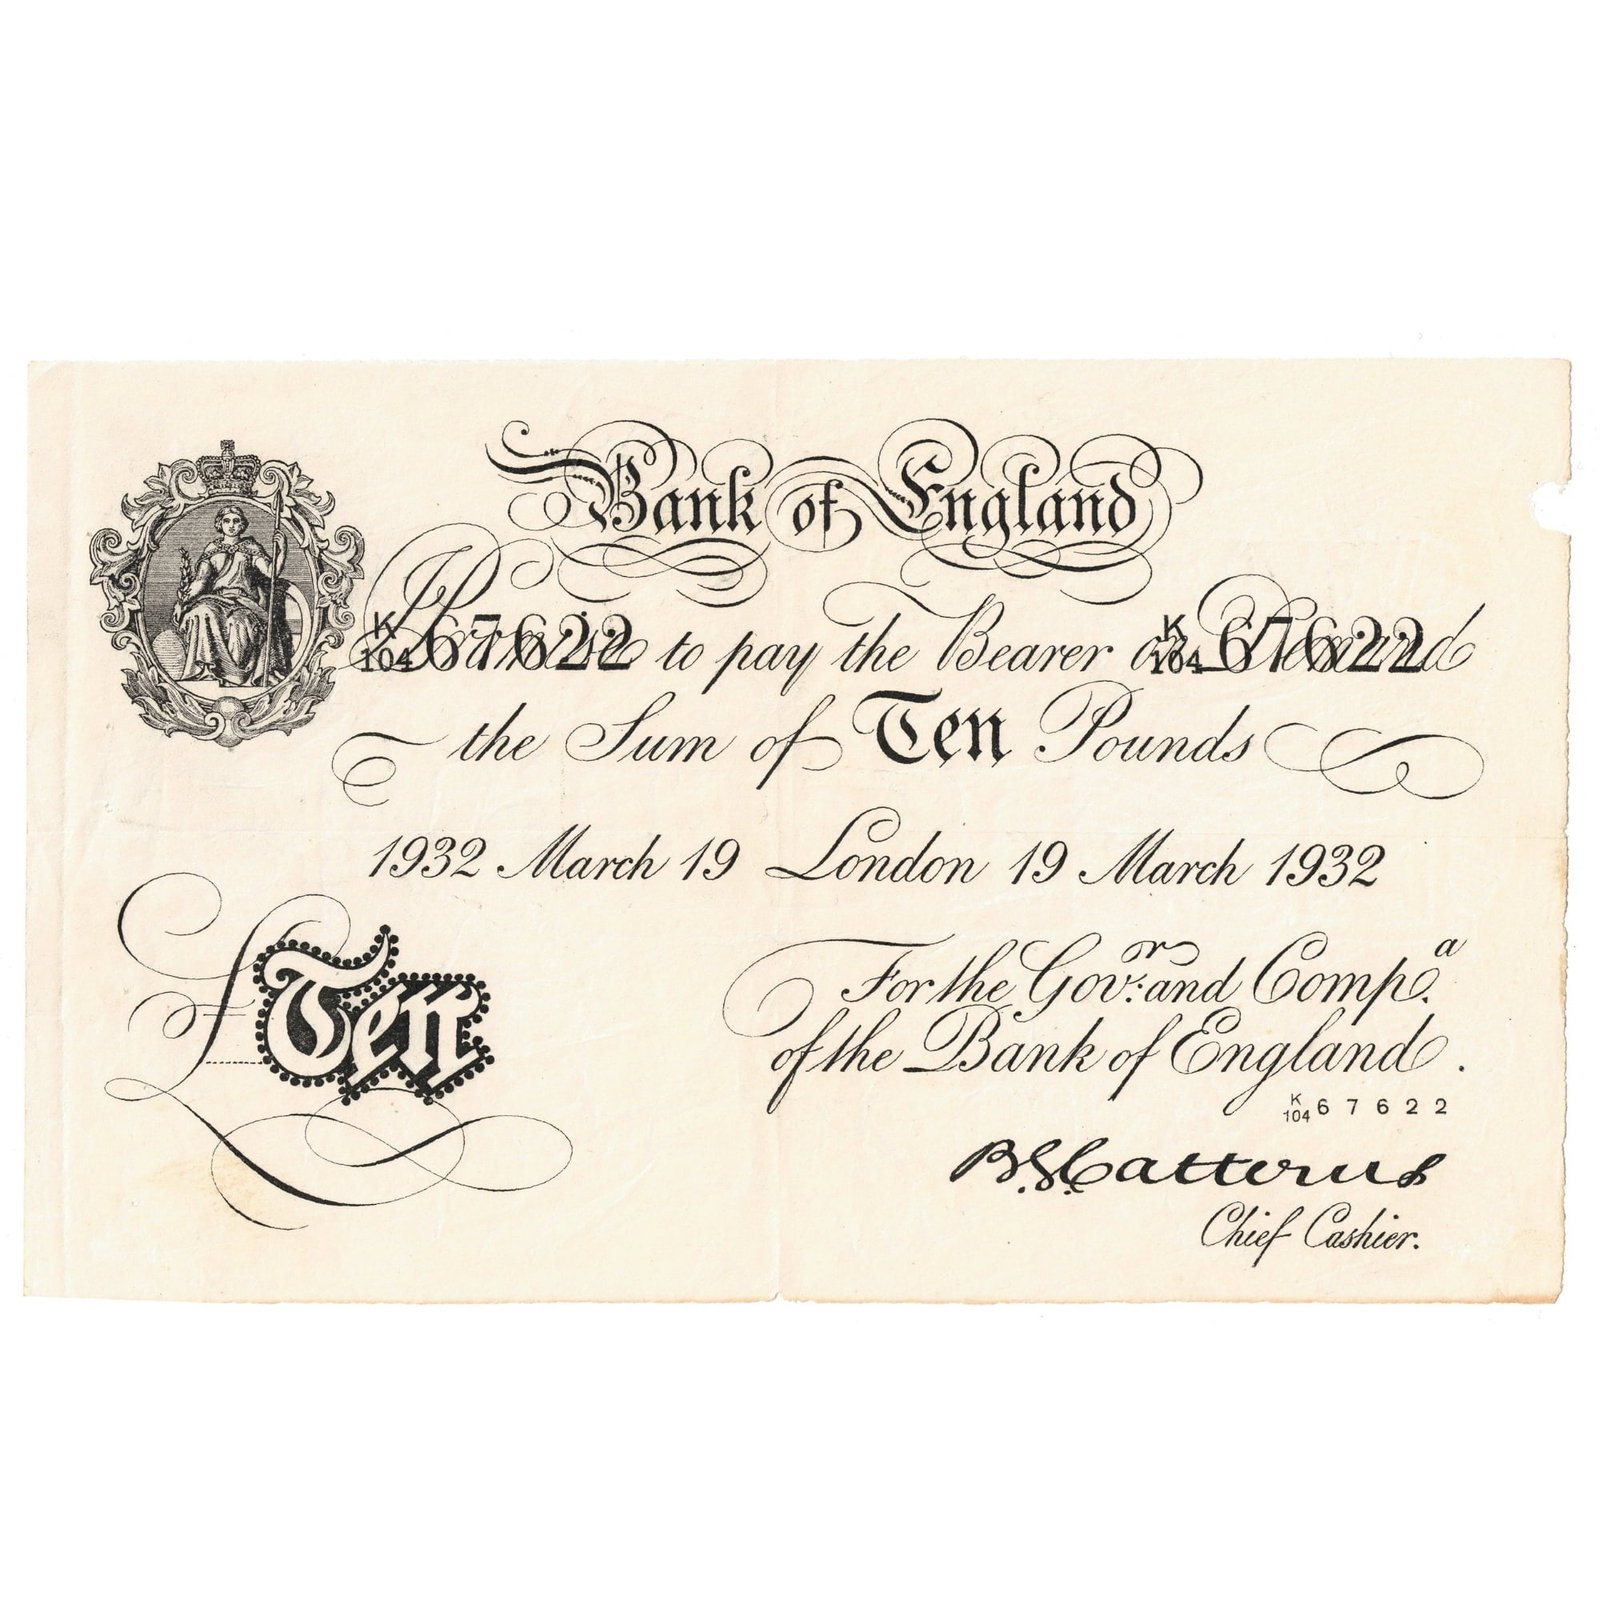 Bank of England
K
104 67622
K
104 67622
I Promise to pay the Bearer on Demand
the Sum of Ten Pounds
1932 March 19 London 19 March 1932
£Ten
For the Gov:r and Comp.a
of the Bank of England.
K
104 67622
B.G. Catterns
Chief Cashier.